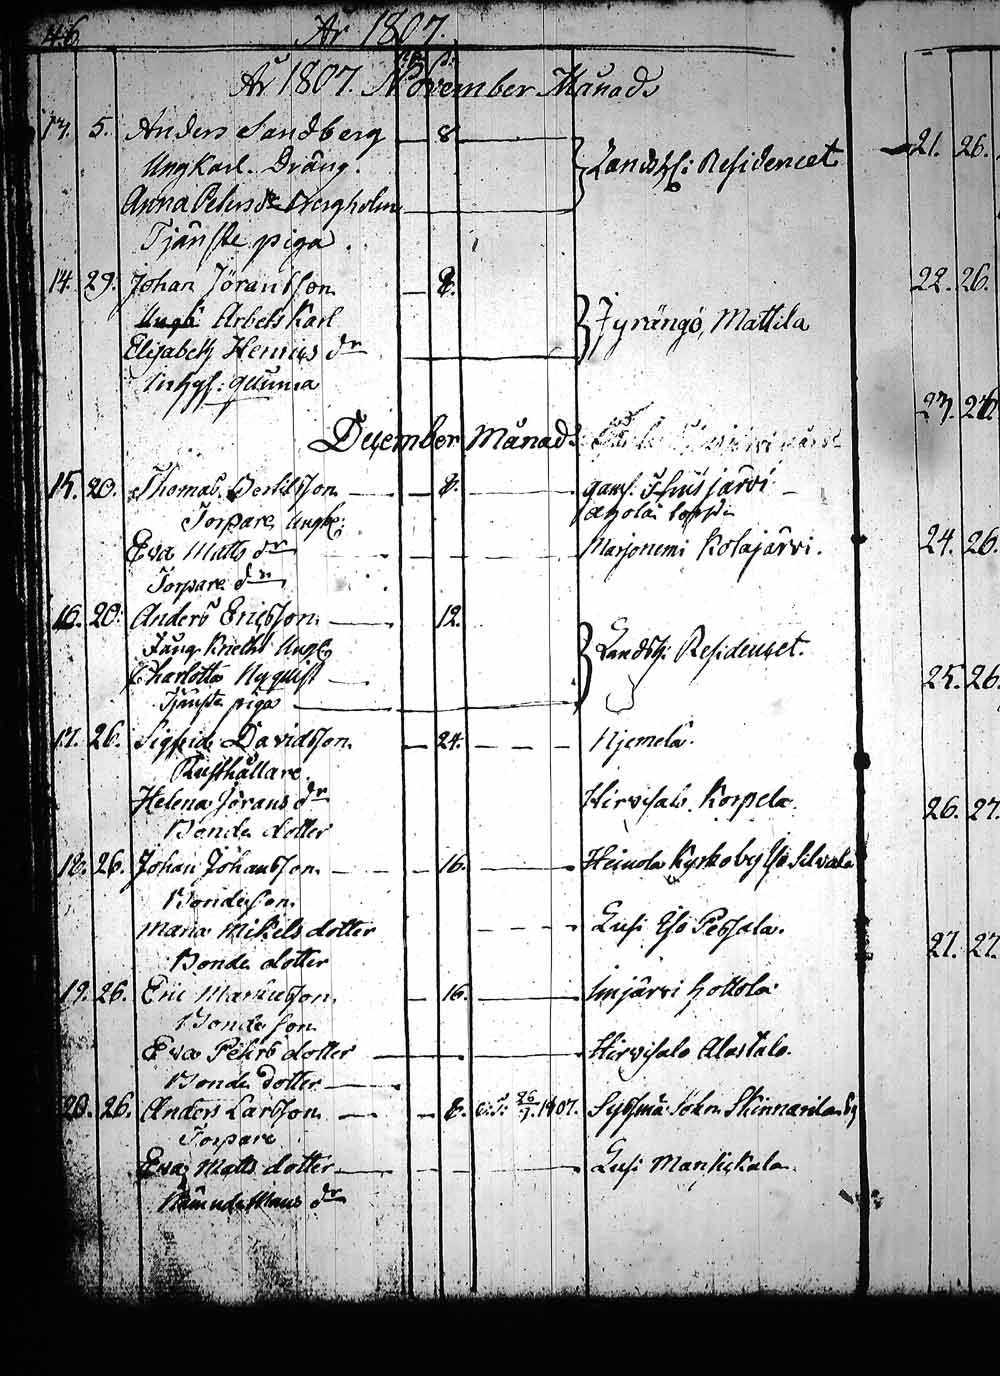 46. År 1807.
År 1807. November Månads
13. 5. Anders Sandberg 8
Ungkarl. Dräng.
Landsh: Residencet
Anna Peters dr Bergholm
Tjänste piga.
14. 29. Johan Jöransson 8.
Arbets Karl
Jyrängö, Mattila
Elisabeth Henrics dr
Inhys: qvinna
December Månads
15. 20. Thomas 8.
Torpare Ungk:
Eva Matts dr Marjonemi Kolajärvi.
Torpare dr
16. 20. Anders Ericsson 12.
Landsh: Residencet.
Charlotta Nyquist
Tjänste piga
17. 26. Sigfrid Davidsson 24. Njemelä.
Rusthållare.
Helena Jörans dr Hirvisalo Korpela.
Bonde dotter
18. 26. Johan Johansson 16. Heinola Kyrkoby Iso Silvala
Bondeson.
Maria Mikels dotter Lusi Iso Pessala.
Bonde dotter
19. 26. Eric Markusson 16. Imjärvi Hottola.
Bonde son
Eva Pehrs dotter Hirvisalo Alastalo.
Bonde dotter
20. 26. Anders Larsson 8. 26/7 1807. Sysmä Sokn Skinnarila By
Torpare
Eva Matts dotter Lusi Mankikala.
Nämndemans dr
21. 26.
22. 26.
23. 26
24. 26.
25. 26.
26. 27.
27. 27.